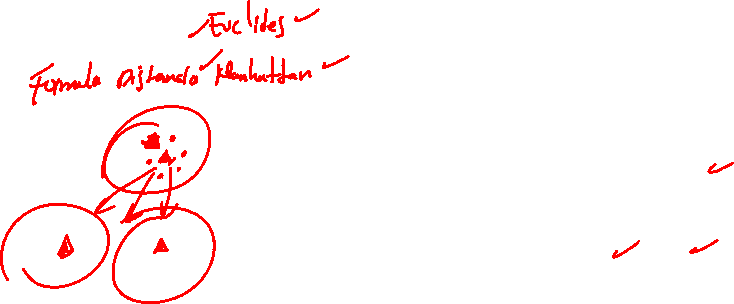 Euclides
Formula Distancia Manhattan